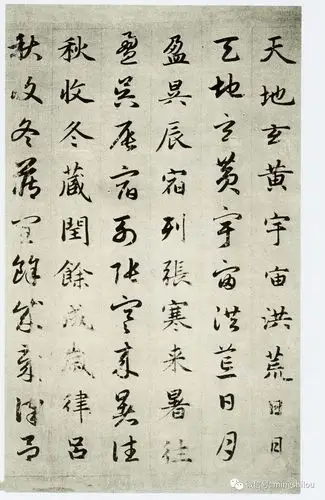 天地玄黃宇宙洪荒日月
天地玄黃宇宙洪荒日月
盈昃辰宿列張寒来暑往
盈昃辰宿列張寒来暑往
秋收冬藏閏餘成歲律呂
秋收冬藏閏餘成歲律呂
mingshilou